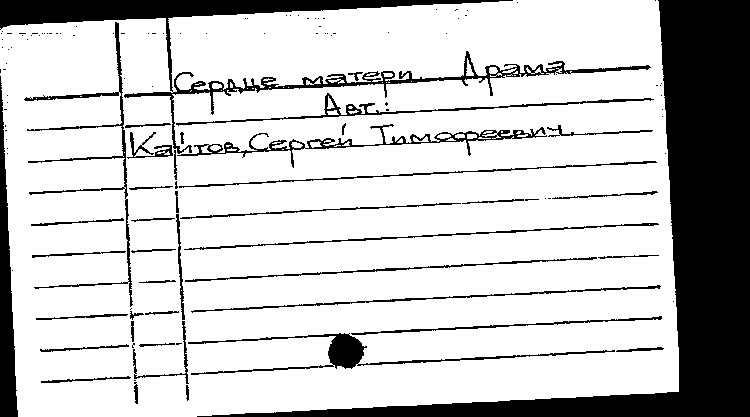 Сердце матери. Драма
Авт.:
Кайтов, Сергей Тимофеевич.